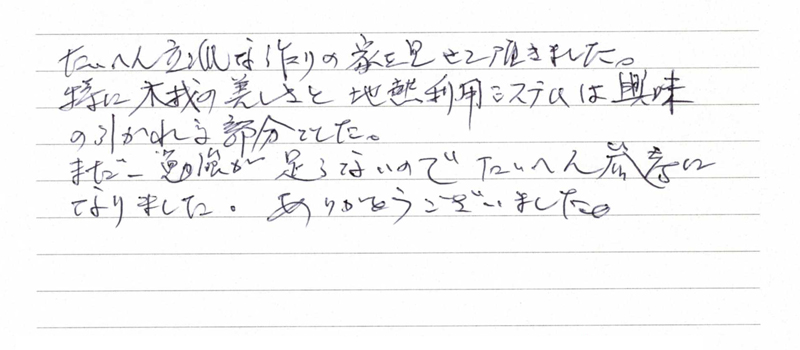 たいへん立派な作りの家を見せて頂きました。
特に木我の美しさと地熱利用システムは興味
の引かれる部分でした。
まだ勉強が足らないのでたいへん参考に
なりました。ありがとうございました。